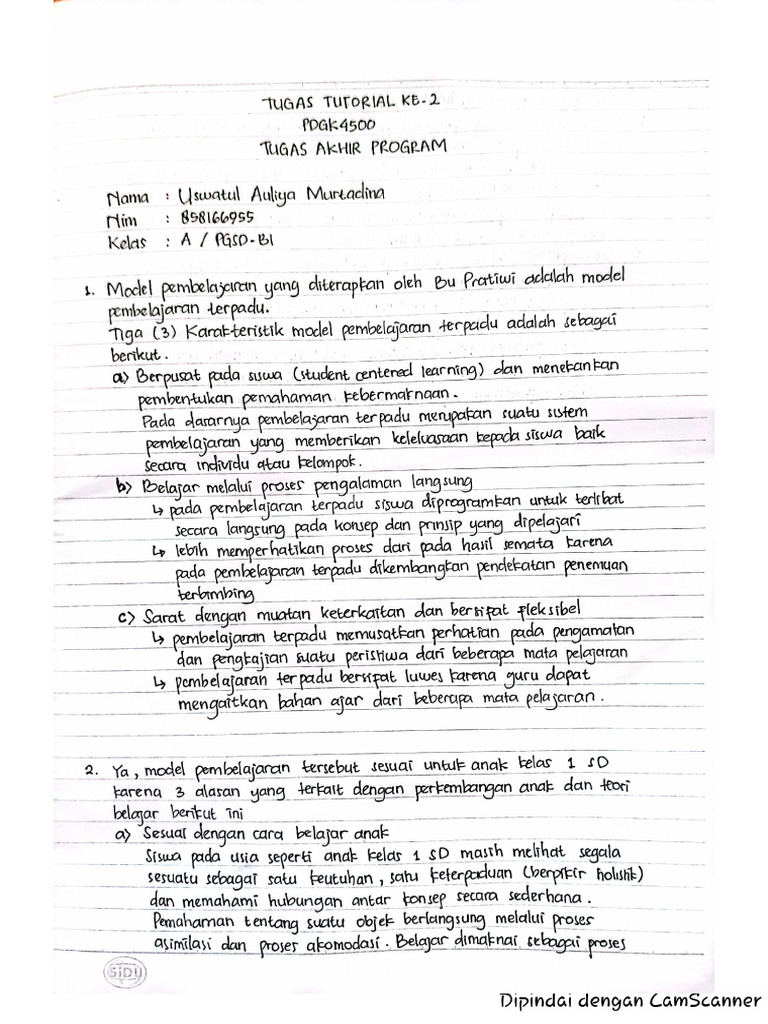 TUGAS TUTORIAL KE-2
PDGK4500
TUGAS AKHIR PROGRAM
Nama : Uswatul Auliya Murtadina
Nim : 858166955
Kelas : A / PGSD-BI
1. Model pembelajaran yang diterapkan oleh Bu Pratiwi adalah model
pembelajaran terpadu.
Tiga (3) Karakteristik model pembelajaran terpadu adalah sebagai
berikut.
a) Berpusat pada siswa (student centered learning) dan menekankan
pembentukan pemahaman kebermaknaan.
Pada dasarnya pembelajaran terpadu merupakan suatu sistem
pembelajaran yang memberikan keleluasaan kepada siswa baik
secara individu atau kelompok.
b) Belajar melalui proses pengalaman langsung
↳ pada pembelajaran terpadu siswa diprogramkan untuk terlibat
secara langsung pada konsep dan prinsip yang dipelajari
↳ lebih memperhatikan proses dari pada hasil semata karena
pada pembelajaran terpadu dikembangkan pendekatan penemuan
terbimbing
c) Sarat dengan muatan keterkaitan dan bersifat fleksibel
↳ pembelajaran terpadu memusatkan perhatian pada pengamatan
dan pengkajian suatu peristiwa dari beberapa mata pelajaran
↳ pembelajaran terpadu bersifat luwes karena guru dapat
mengaitkan bahan ajar dari beberapa mata pelajaran.
2. Ya, model pembelajaran tersebut sesuai untuk anak kelas 1 SD
karena 3 alasan yang terkait dengan perkembangan anak dan teori
belajar berikut ini
a) Sesuai dengan cara belajar anak
Siswa pada usia seperti anak kelas 1 SD masih melihat segala
sesuatu sebagai satu keutuhan, satu keterpaduan (berpikir holistik)
dan memahami hubungan antar konsep secara sederhana.
Pemahaman tentang suatu objek berlangsung melalui proses
asimilasi dan proses akomodasi. Belajar dimaknai sebagai proses
SiDU
Dipindai dengan CamScanner